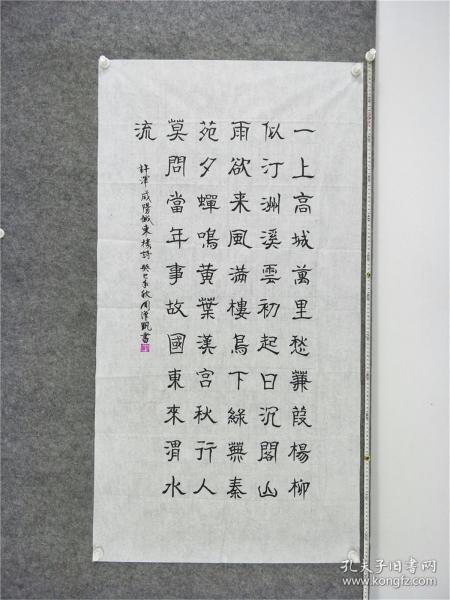 一上高城萬里愁蒹葭楊柳
似汀洲溪雲初起日沉閣山
雨欲来風满樓鳥下綠蕪秦
苑夕蟬鳴黄葉漢宫秋行人
莫問當年事故國東來渭水
流
許渾咸陽城東樓詩癸巳年秋周澤甄書
孔夫子旧书网
www.kongfz.com